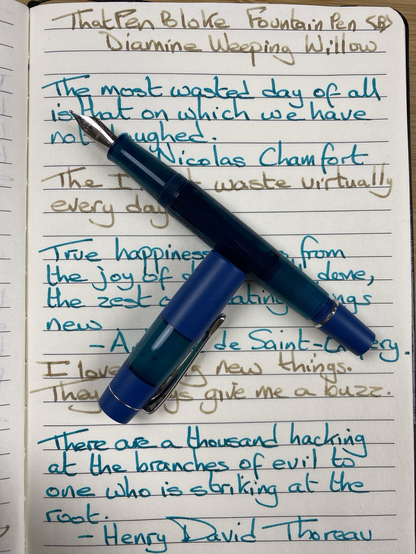 ThatPen Bloke Fountain Pen
Diamine Weeping Willow
The most wasted day of all
is that on which we have
not laughed.
Nicolas Chamfort
The I waste virtually
every day
True happiness from
the joy of done,
the zest
new
- de Saint-
I love new things.
They give me a buzz.
There are a thousand hacking
at the branches of evil to
one who is striking at the
root.
- Henry David Thoreau